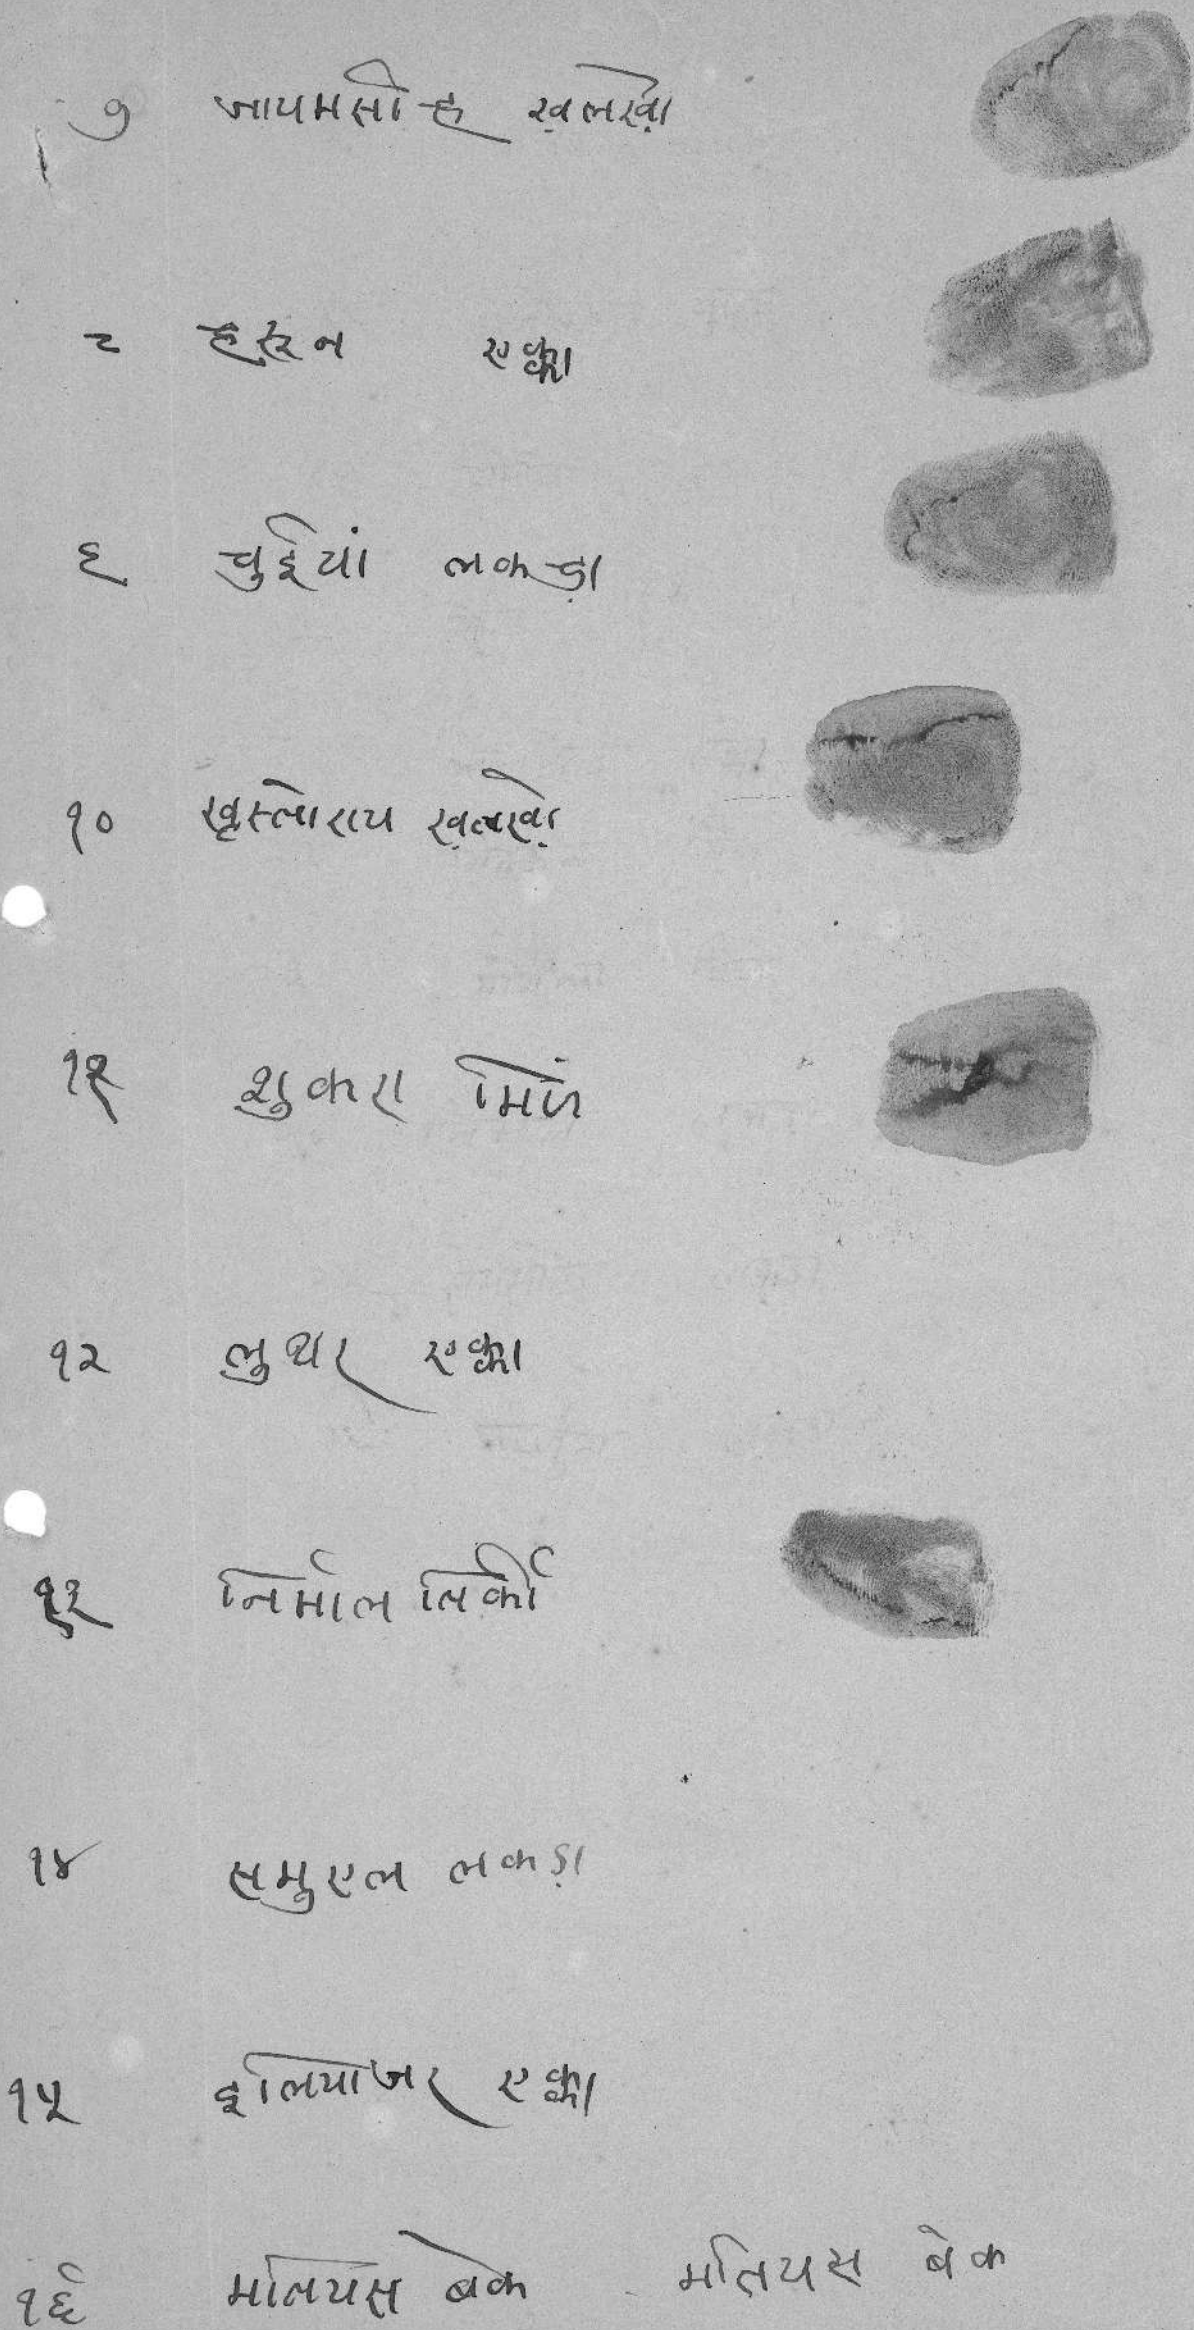 ७ जायमसीह ख़लख़ो
८ हरुन एक्का
९ चुईयां लकड़ा
१० ख्रृस्तोराय ख़लख़ो
११ शुकरा मिंज
१२ लुथर एक्का
१३ निर्माल तिर्की
१४ समुएल लकड़ा
१५ इलियाजर एक्का
१६ मतियस बेक मतियस बेक